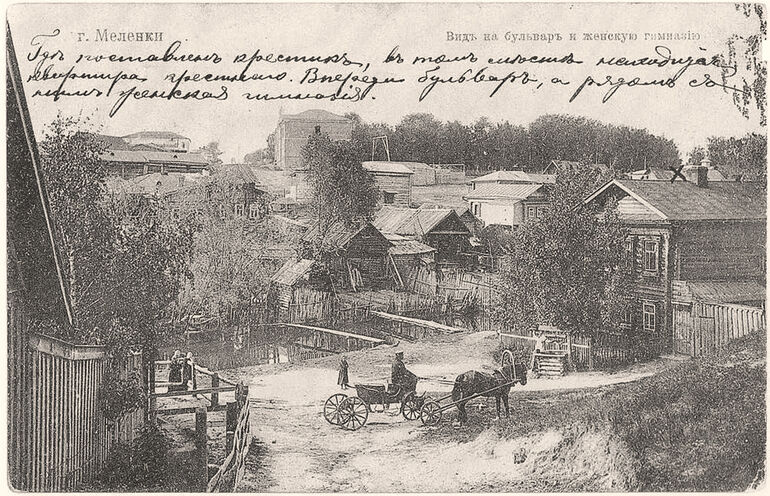 г. Меленки
Видъ на бульваръ и женскую гимназію
Гдѣ поставленъ крестикъ, въ томъ мѣстѣ находится
квартира крестнаго. Впереди бульваръ, а рядомъ съ
нимъ женская гимназія.
x